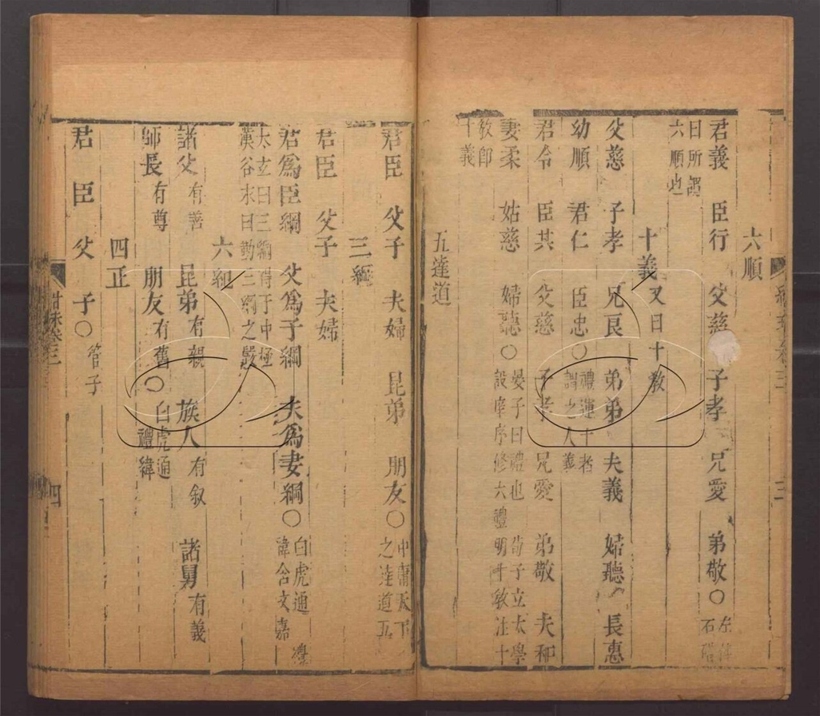 六順
君義　臣行　父慈　子孝　兄愛　弟敬〇左傳石碏
曰所謂六順也
十義又曰十教
父慈　子孝　兄良　弟弟　夫義　婦聽　長惠
幼順　君仁　臣忠〇禮運十者謂之人義
君令　臣共　父慈　子孝　兄愛　弟敬　夫和
妻柔　姑慈　婦聽〇晏子曰禮也荀子立太學設庠序修六禮明十教注十
教即十義
五達道
君臣　父子　夫婦　昆弟　朋友〇中庸天下之達道五
三綱
君臣　父子　夫婦
君為臣綱　父為子綱　夫為妻綱〇白虎通　禮緯含文嘉
太玄曰三綱得于中極漢谷永曰勤三綱之嚴
六紀
諸父有善　昆弟有親　族人有叙　諸舅有義
師長有尊　朋友有舊〇白虎通　禮緯
四正
君　臣　父　子〇管子